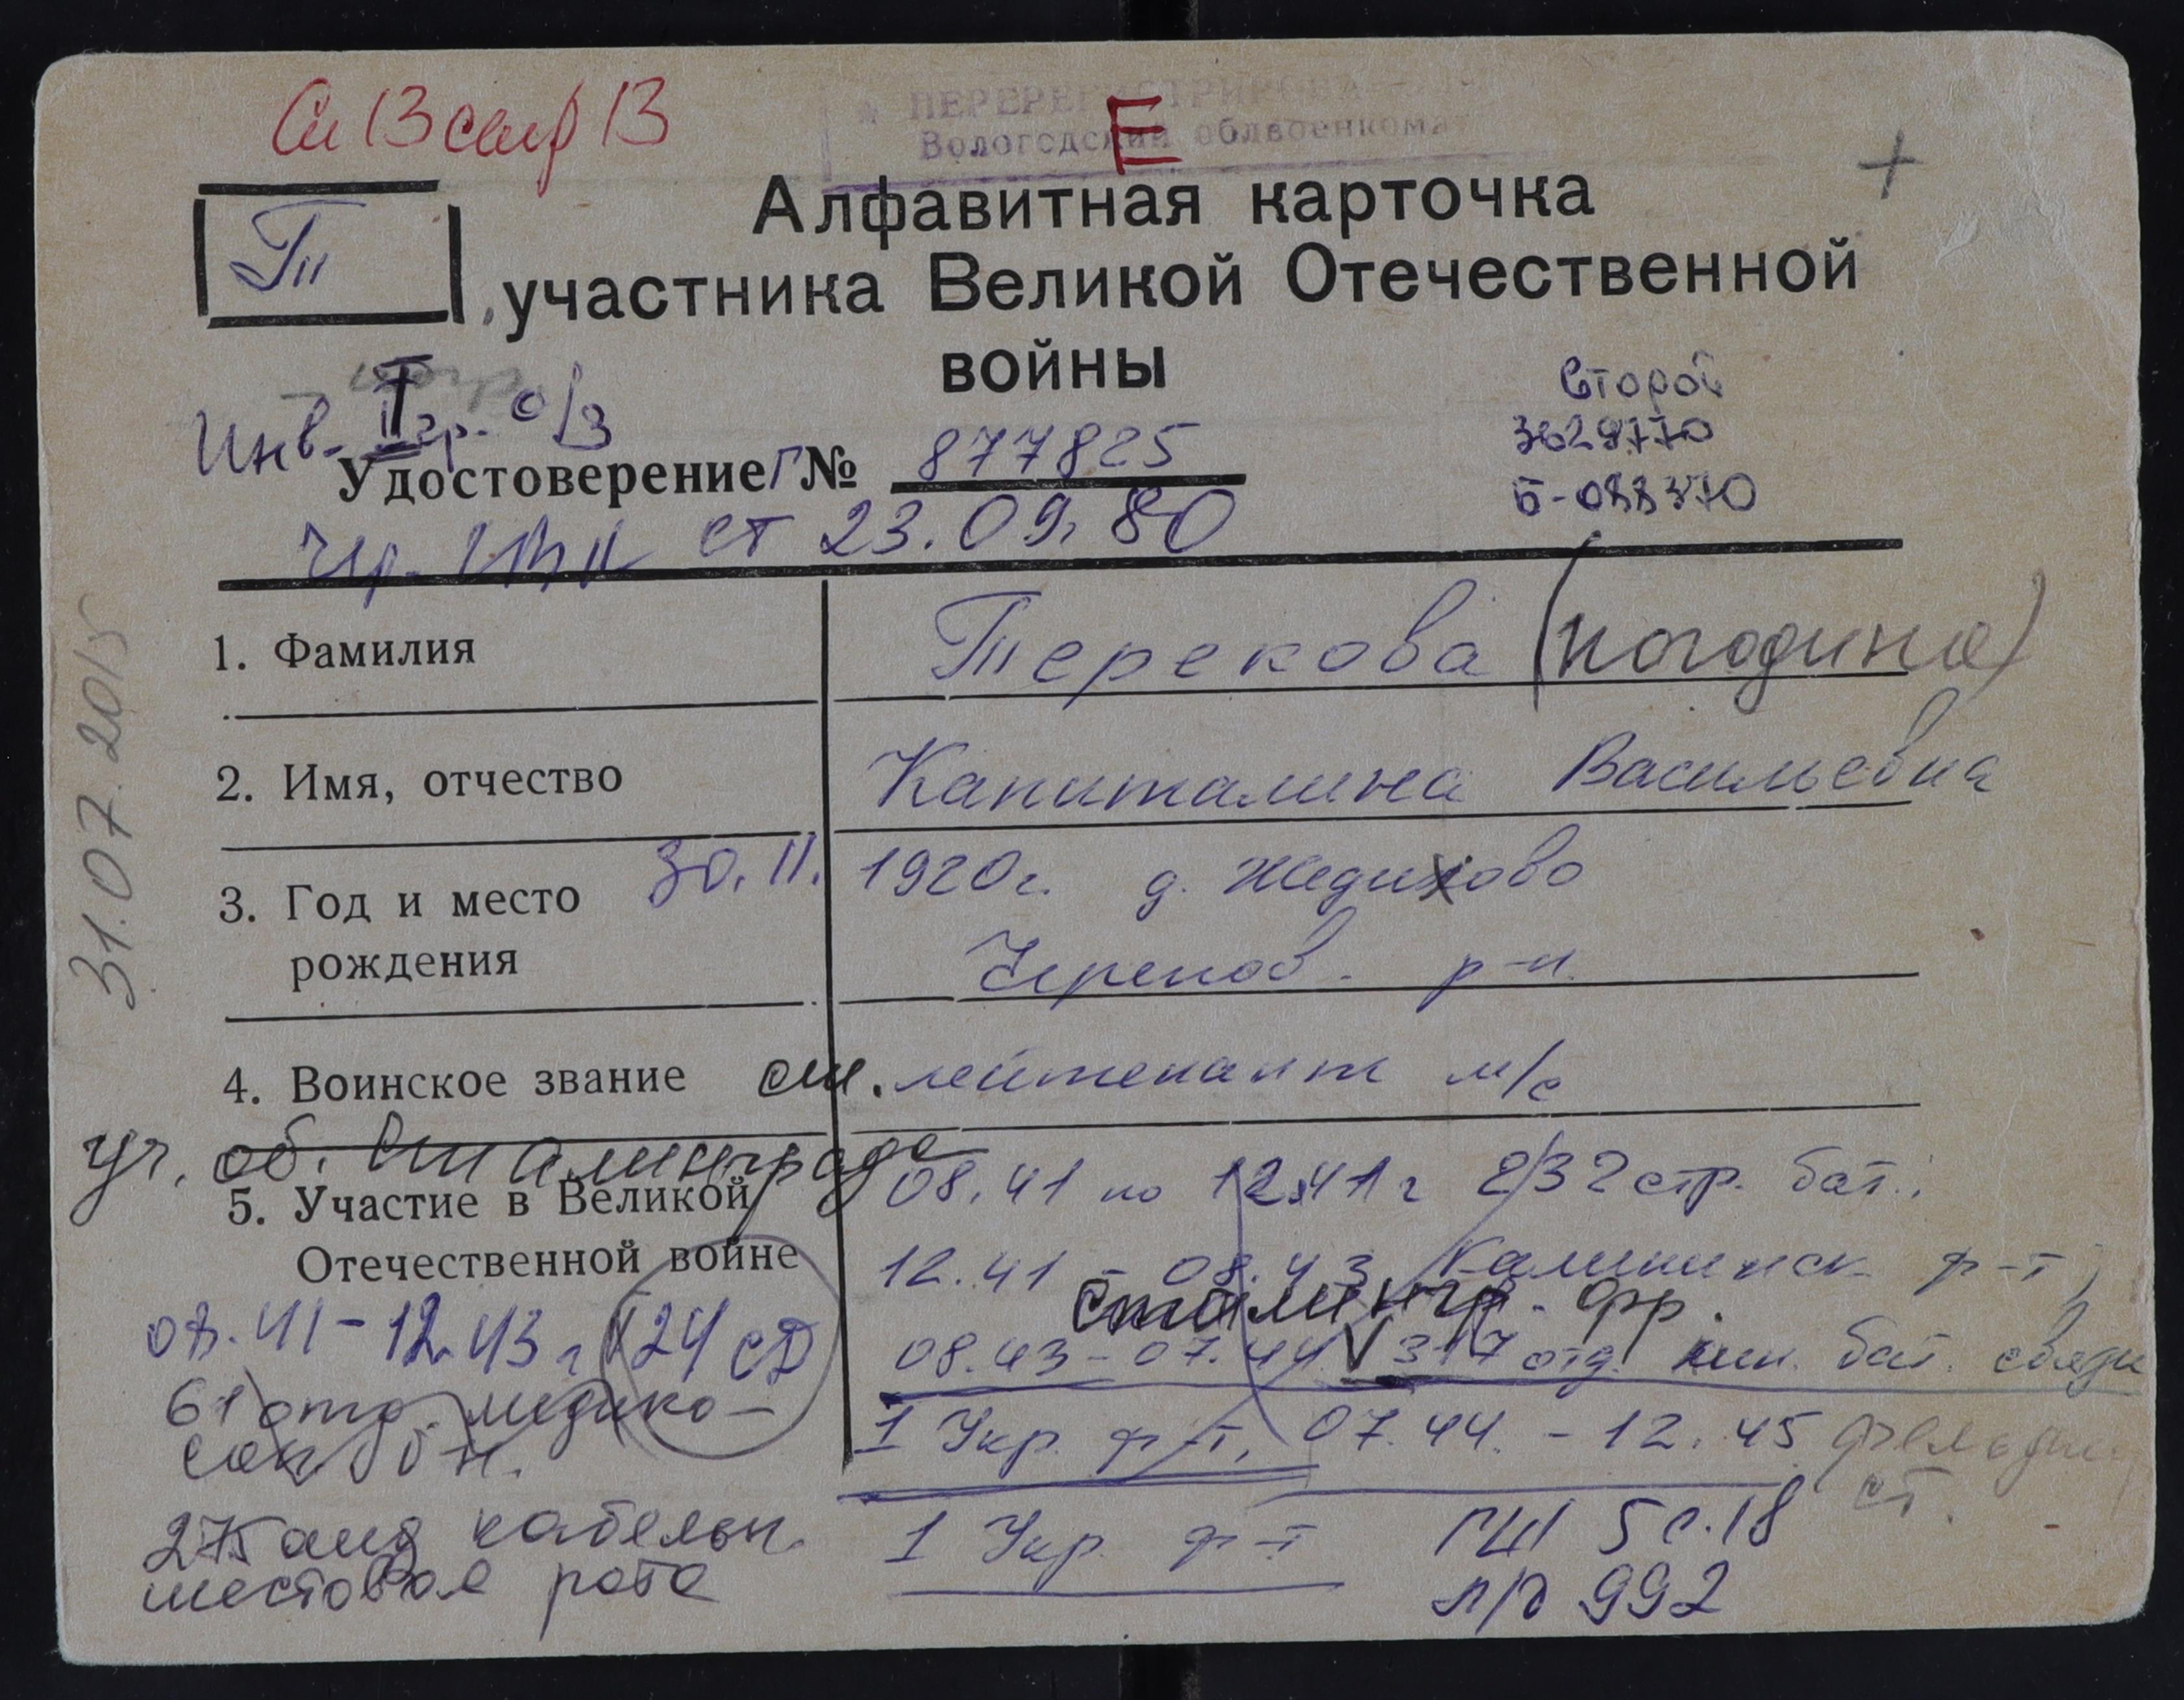 ПЕРЕРЕГИСТРИРОВА
Вологодский облвоенкомат
Е
+
Алфавитная карточка
участника Великой Отечественной
войны
Т
Инв. II гр. о/з
Второй
3629770
Удостоверение Г № 877825
Б-088370
Чер. ГВК от 23.09.80
1. Фамилия Терехова (Погодина)
2. Имя, отчество Капиталина Васильевна
3. Год и место рождения 30.11. 1920г. д. Жедихово
Черепов. р-н.
4. Воинское звание ст. лейтенант м/с
уч. об. Сталинграда
5. Участие в Великой
Отечественной войне
08.41 по 12.41 г 232 стр. бат.;
12.41 - 08.43 Калининск ф-т;
Сталингр. фр.
08.43 - 07.44 V 317 отд. лин. бат. связи
1 Укр. ф-т, 07.44. - 12.45
1 Укр ф-т
08.41 - 12.43 г 124 СД
61 отд. медико-
сан. б-н.
275 кабельн.
шестовая рота
ГШ 5 с.18
п/о 992
31.07.2015